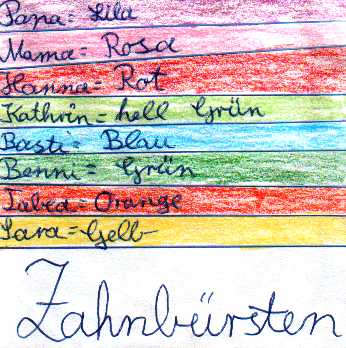 Papa = Lila
Mama = Rosa
Hanna = Rot
Kathrin = hell Grün
Basti = Blau
Benni = Grün
Tabea = Orange
Sara = Gelb
Zahnbürsten